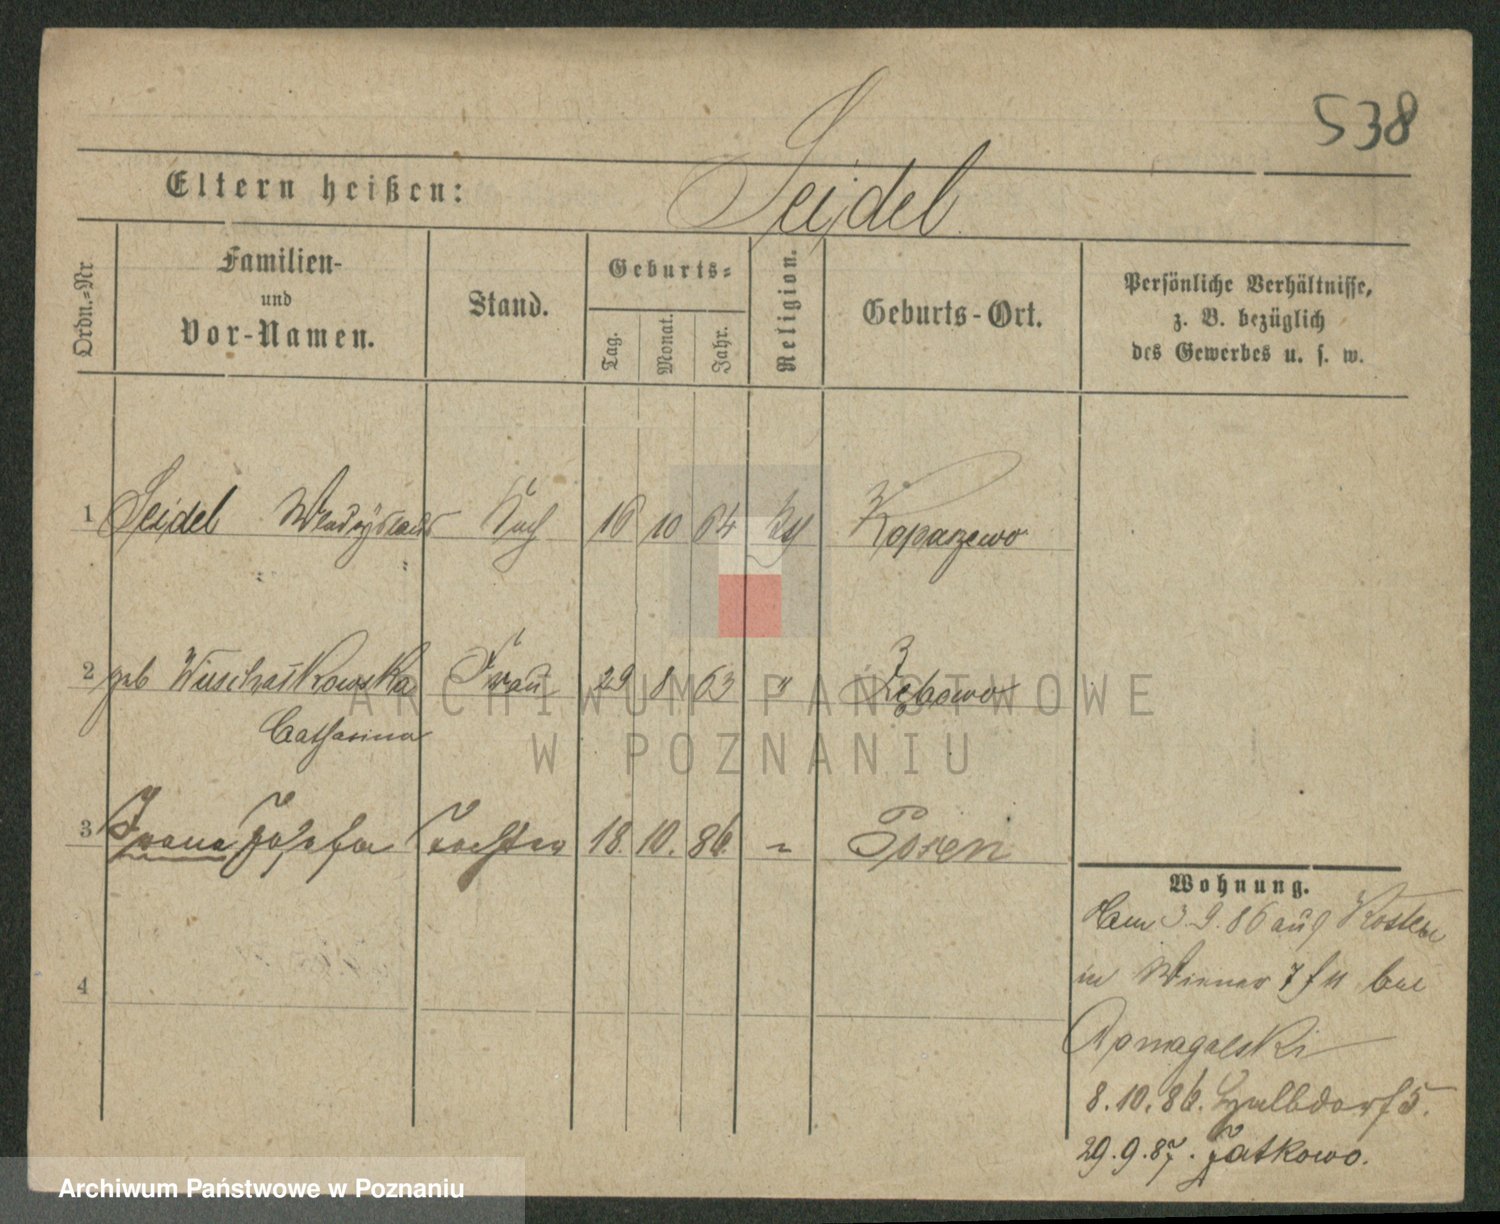 538
Eltern heißen: Seidel
Ordn.-Nr.
Familien-
und
Vor-Namen.
Stand.
Geburts-
Tag.
Monat.
Jahr.
Religion.
Geburts-Ort.
Persönliche Verhältnisse,
z. B. bezüglich
des Gewerbes u. s. w.
1 Seidel Wladyslaus 16 10 64 kth
2 geb Frau 29 8 63 "
Catharina
3 Josefa Tochter 18. 10. 86. " Posen
4
Wohnung.
3.9.86 aus Kosten
in Wiener 7 bei
8.10.86. Halbdorf 5.
29.9.87. Jatkowo.
ARCHIWUM PAŃSTWOWE
W POZNANIU
Archiwum Państwowe w Poznaniu